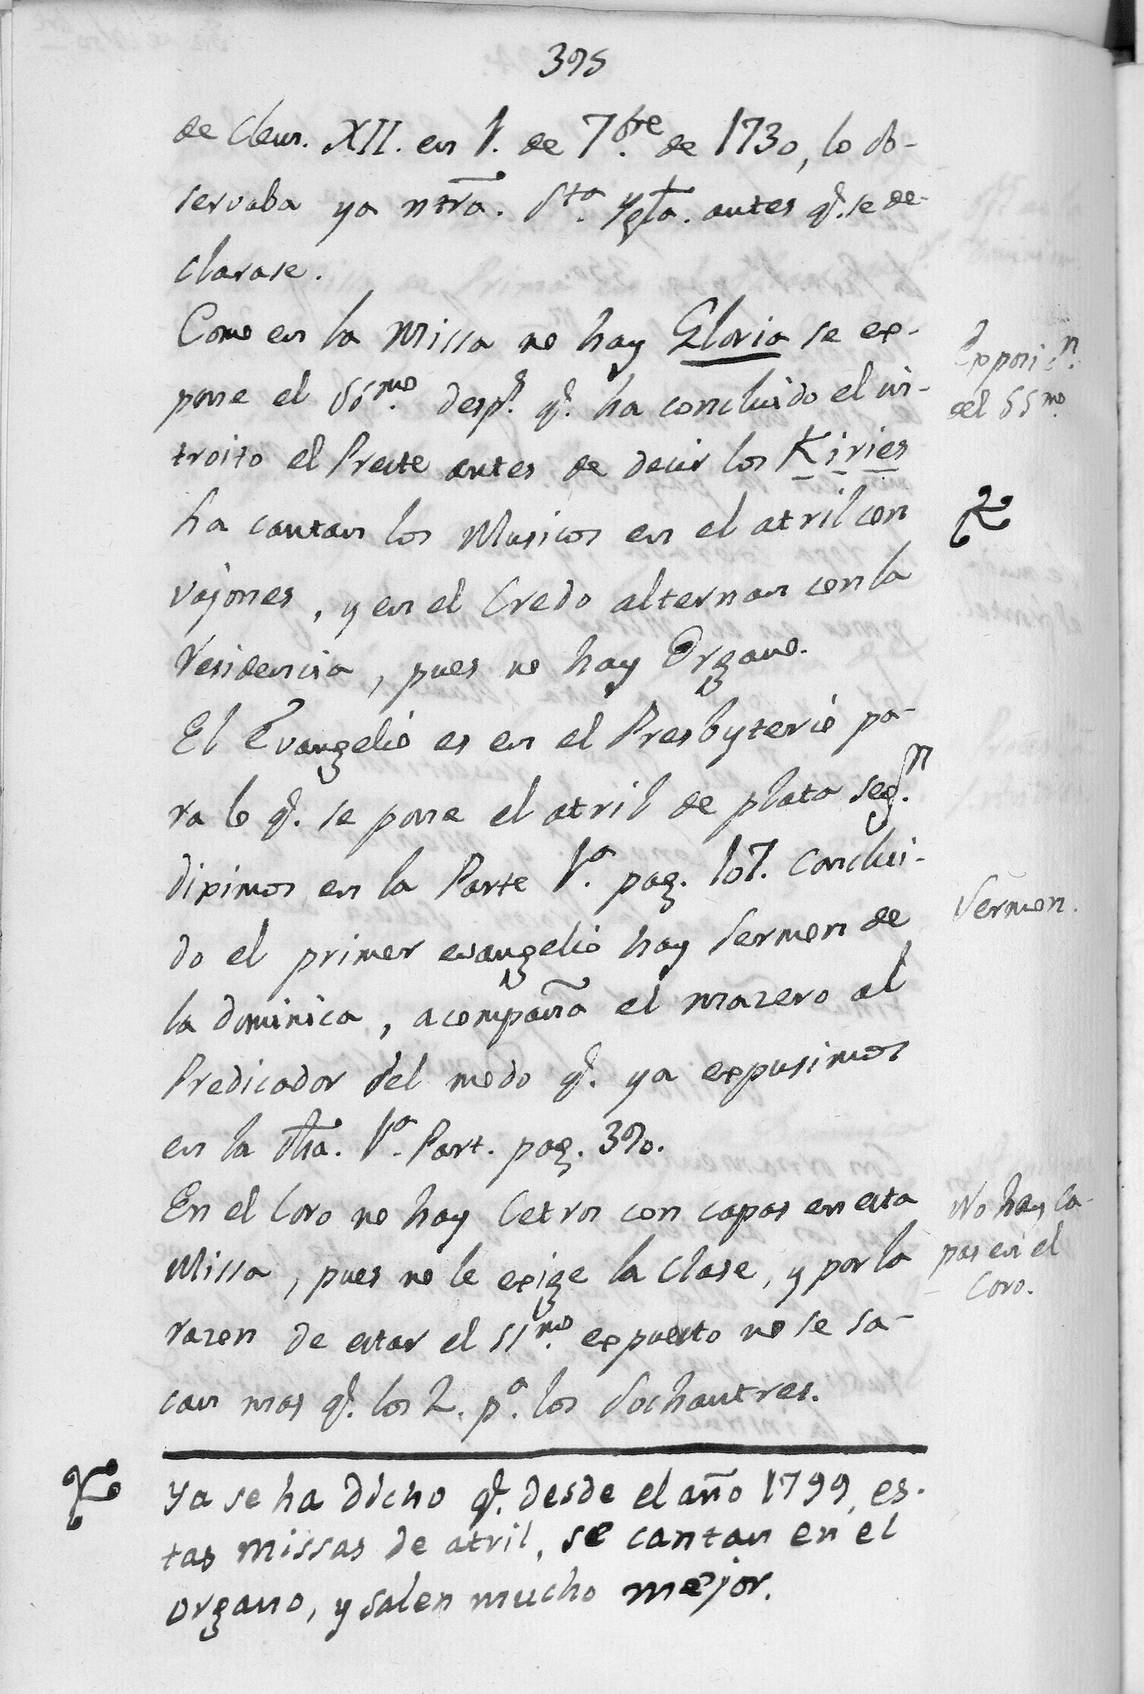 395
de Clem. XII. en 1. de 7.bre de 1730, lo ob-
servaba ya ntra. Sta. Ygla. antes q. se de-
clarase.
Como en la Missa no hay Gloria se ex-
pone el SSmo. desp. q. ha concluido el in-
troito el Preste antes de decir los Kiries
la cantan los Musicos en el atril con
vajones, y en el Credo alternan con la
residencia, pues no hay Organo.
El Evangelio es en el Presbyterio pa-
ra lo q. se pone el atril de plata seg.n
diximos en la Parte 1.a pag. 107. Conclui-
do el primer evangelio hay Sermon de
la dominica, acompaña el mazero al
Predicador del modo q. ya expusimos
en la dha. 1.a Part. pag. 390.
En el Coro no hay Cetros con capas en esta
Missa, pues no le exige la Clase, y por la
razon de estar el SSmo. expuesto no se sa-
can mas q. los 2. p.a los Sochantres.
Exposic.n
del SSmo.
Sermon.
No hay ca-
pas en el
Coro.
Ya se ha dicho q. desde el año 1799, es-
tas missas de atril, se cantan en el
organo, y salen mucho mejor.